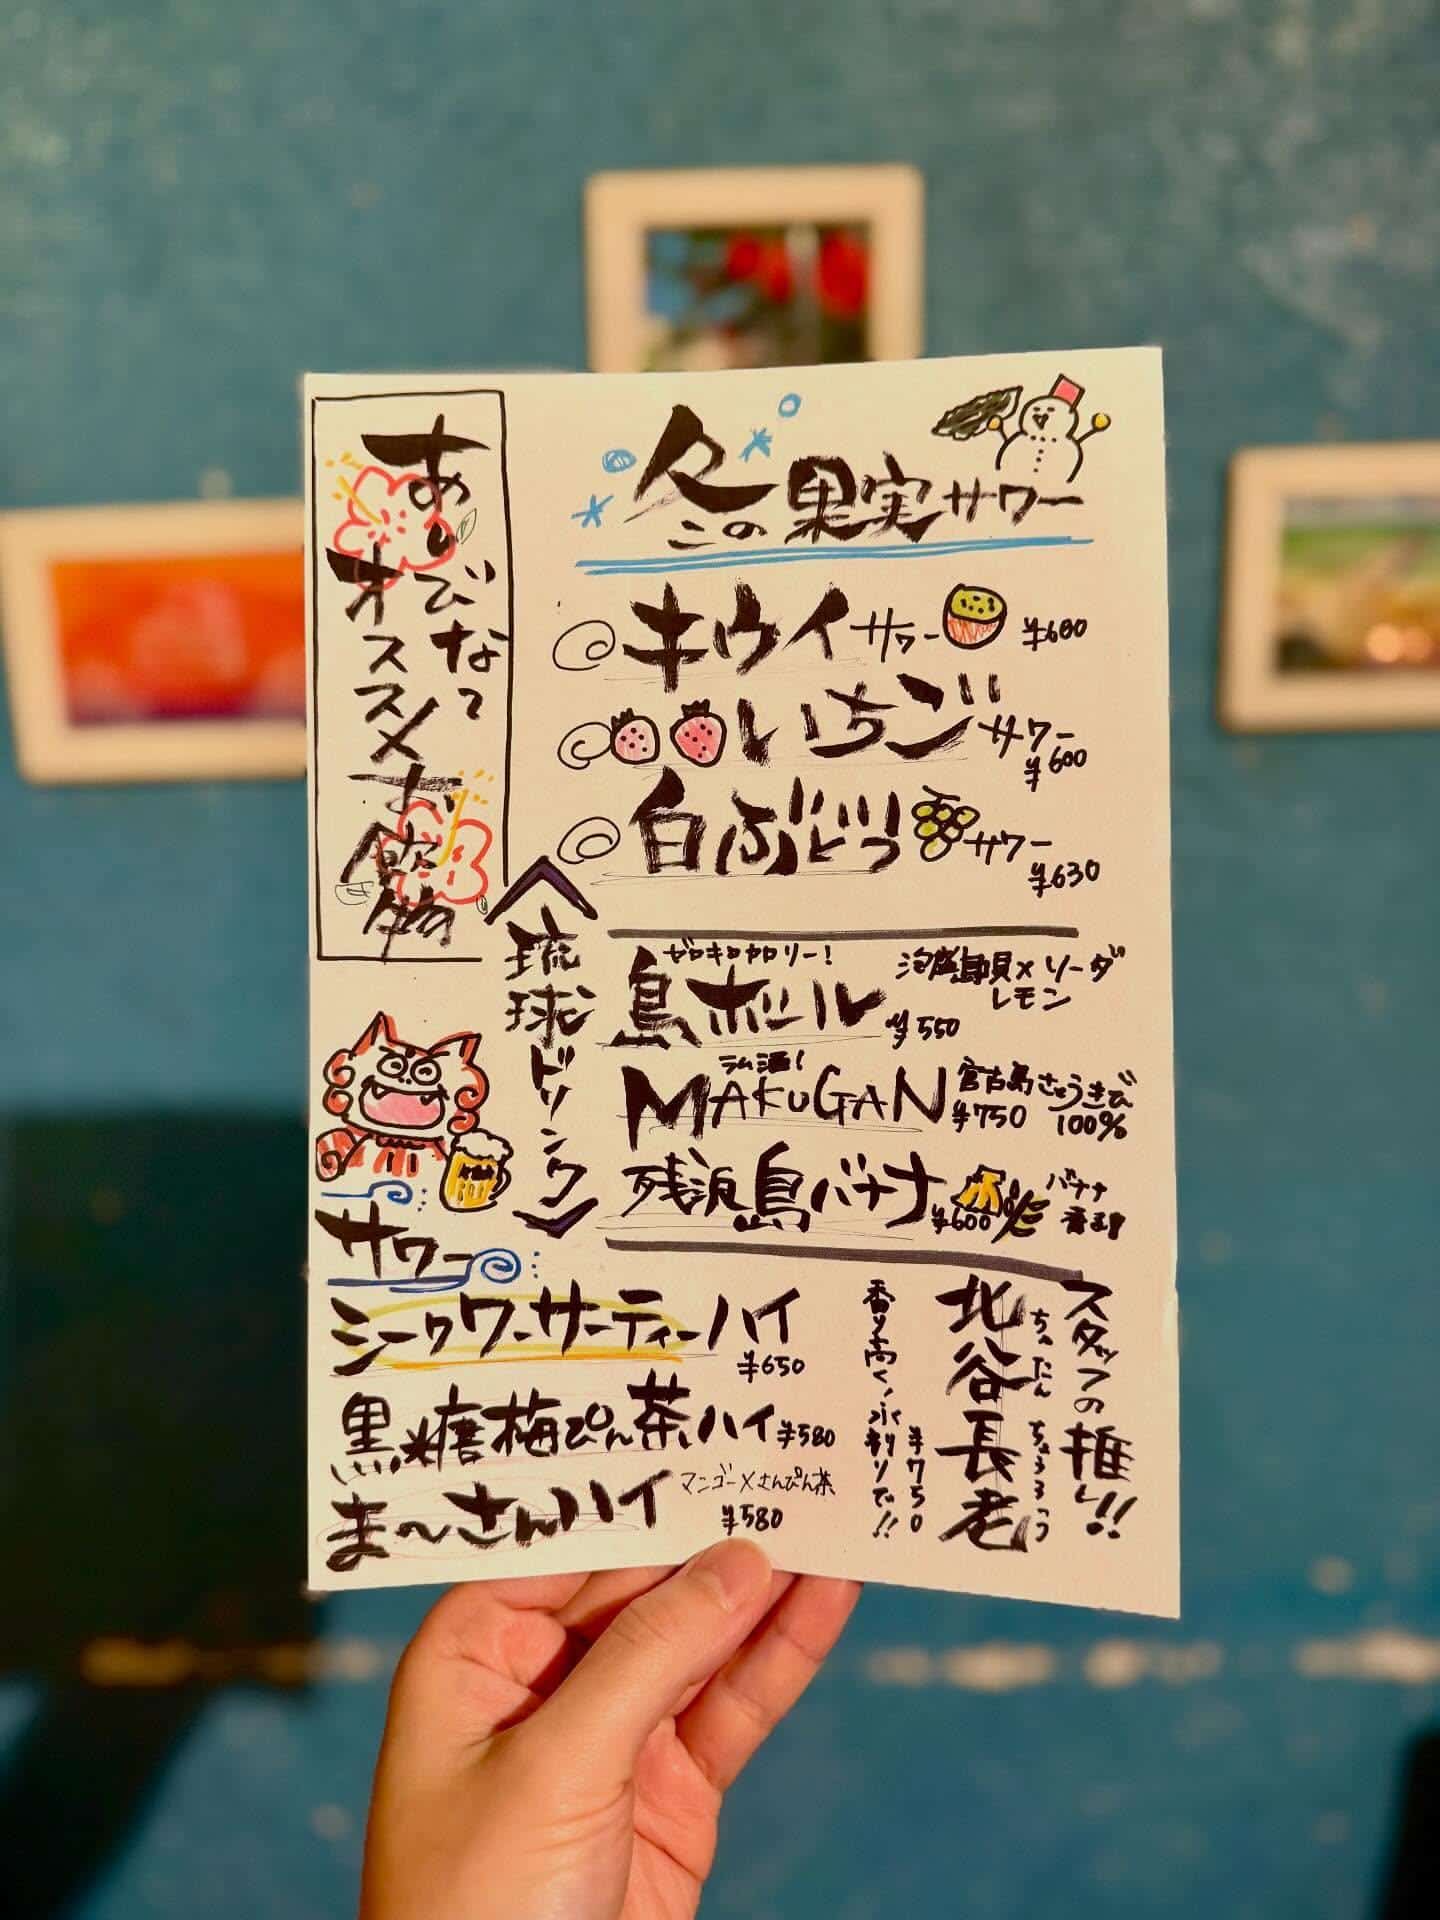 あしびなて
オススメ
お飲物
冬の果実サワー
キウイサワー ¥600
いちごサワー
¥600
白ぶどうサワー
¥630
琉球ドリンク
ゼロキロカロリー!
島ボール ¥550
泡盛島唄×ソーダ
レモン
ラム酒!
MAKUGAN ¥750
宮古島さとうきび
100%
残波島バナナ ¥600
バナナ
サワー
シークワーサーティーハイ
¥650
黒糖梅ぴん茶ハイ ¥580
ま〜さんハイ
マンゴー×さんぴん茶
¥580
スタッフの推し!!
北谷長老
ちゃたんちょうろう
¥750
香り高く!水割りで!!